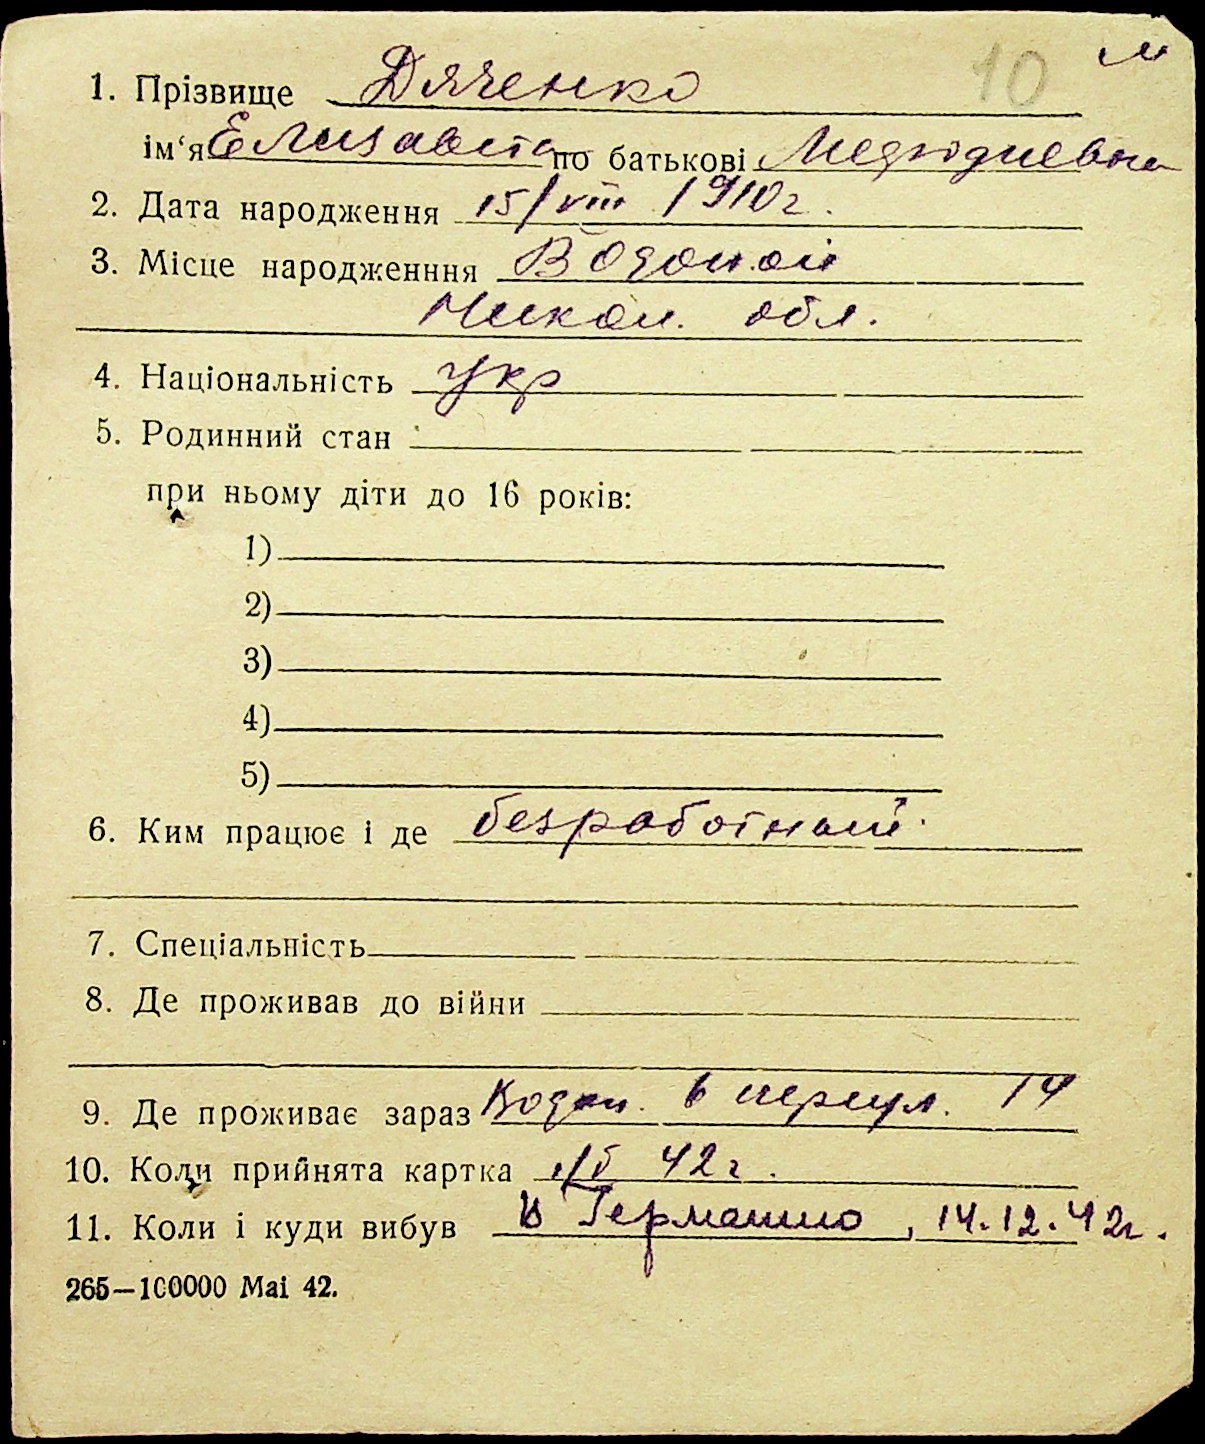 10 м
1. Прізвище Дяченко
ім‘я Елизавета по батькові
2. Дата народження 15/VIII 1910 г.
3. Місце народженння
Никол. обл.
4. Національність укр
5. Родинний стан
при ньому діти до 16 років:
1)
2)
3)
4)
5)
6. Ким працює і де безработный
7. Спеціальність
8. Де проживав до війни
9. Де проживає зараз 14
10. Коли прийнята картка 42 г.
11. Коли і куди вибув в Германию, 14.12.42г.
265—100000 Mai 42.